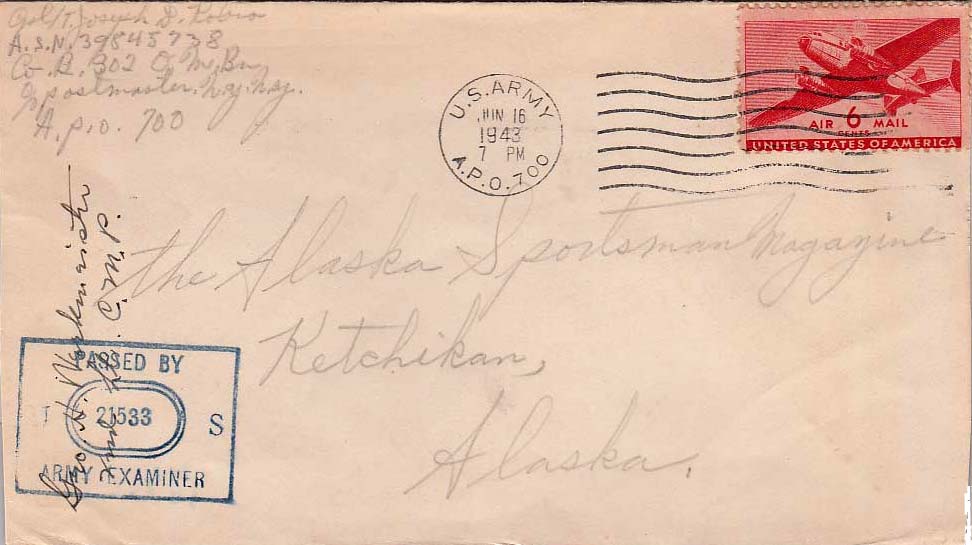 Joseph D.
A.S.N. 39845738
Co. B. 302 Q.M. Bn
% postmaster. N.Y. N.Y.
A.P.O. 700
U.S. ARMY
JUN 16
1943
7 PM
A.P.O. 700
AIR 6 MAIL
CENTS
UNITED STATES OF AMERICA
the Alaska Sportsman Magazine
Ketchikan,
Alaska.
PASSED BY
21533
S
ARMY EXAMINER
Geo. N.